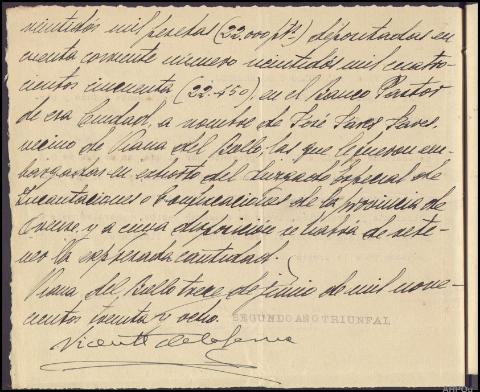 veintidos mil pesetas (22.000 pts) depositadas en
cuenta corriente número veintidos mil cuatro-
cientos cincuenta (22.450), en el Banco Pastor
de esa Ciudad, a nombre de José
vecino de Viana del Bollo, las que fueron em-
bargadas en exhorto del Juzgado Especial de
Incautaciones de la provincia de
Orense, y a cuya disposición se habrá de rete-
ner la expresada cantidad.
Viana del Bollo trece de junio de mil nove-
cientos treinta y ocho.
SEGUNDO AÑO TRIUNFAL
Vicente
AHPOu